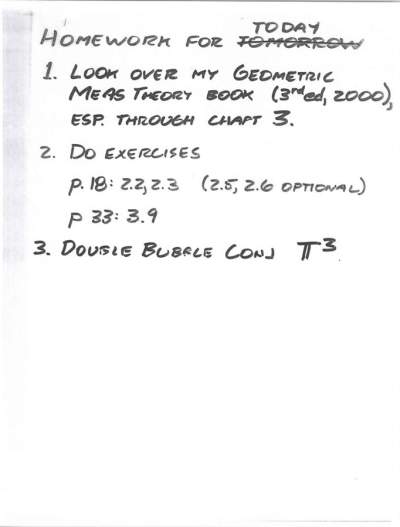 TODAY
HOMEWORK FOR TOMORROW
1. LOOK OVER MY GEOMETRIC
MEAS THEORY BOOK (3rd ed, 2000),
ESP. THROUGH CHAPT 3.
2. DO EXERCISES
p. 18: 2.2, 2.3 (2.5, 2.6 OPTIONAL)
p 33: 3.9
3. DOUBLE BUBBLE CONJ T³